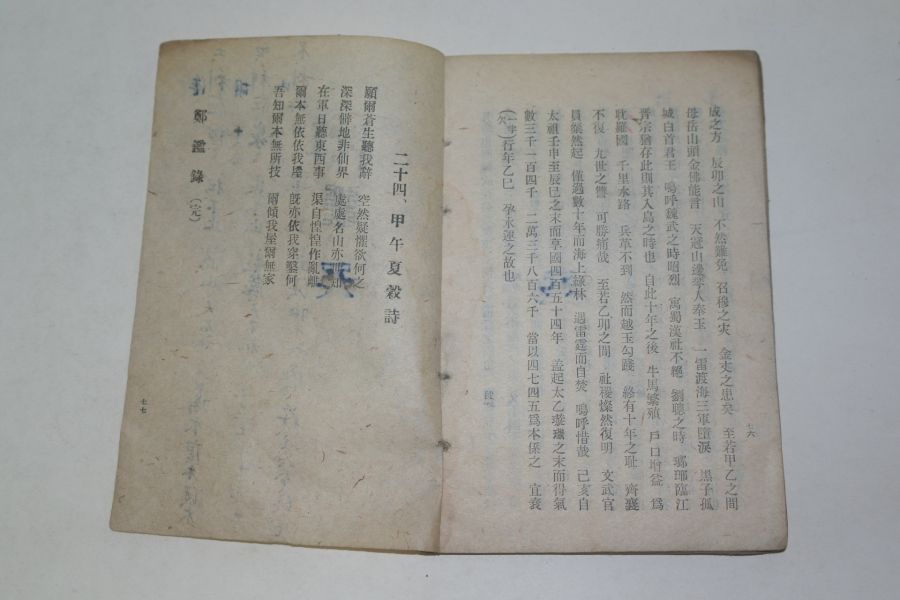 成之方 辰卯之山 不然難免 召穆之灾 金丈之患矣 至若甲乙之間
母岳山頭金佛能言 天冠山邊琴人奉玉 一雷渡海三軍墮淚 黑子孤
城白首君王 嗚呼魏武之時昭烈 寓蜀漢社不絶 劉聰之時 瑯琊臨江
晋宗猶存此則其入島之時也 自此十年之後 牛馬繁殖 戶口增益 爲
耽羅國 千里水路 兵革不到 然而越王勾踐 終有十年之耻 齊襄
不復 九世之讐 可勝痛哉 至若乙卯之間 社稷燦然復明 文武官
員燦然起 僅過數十年而海上綠林 遇雷霆而自焚 嗚呼惜哉 己亥自
太祖壬申至辰巳之末而享國四百五十四年 盖起太乙璇璣之末而得氣
數三千一百四千 二萬三千八百六千 當以四七四五爲本係之 宜衰
(一字欠)行年乙巳 孕永運之故也 段
七六
二十四、甲午夏穀詩
願爾蒼生聽我辭 空然疑懼欲何之
深深僻地非仙界 處處名山亦
在軍日聽東西事 渠自惶惶作亂離
爾本無依依我屋 旣亦依我穿鑿何
吾知爾本無所技 爾傾我屋爾無家
鄭鑑錄(完)
七七